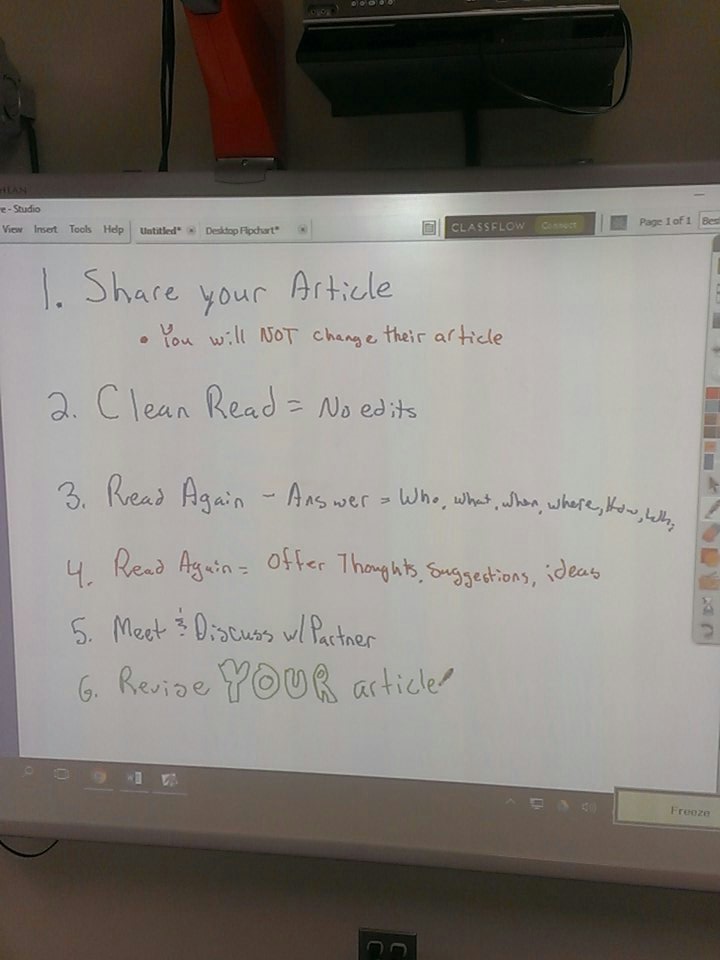 HEAN
re - Studio
View Insert Tools Help Untitled* Desktop Flipchart* CLASSFLOW Connect Page 1 of 1 Bes
1. Share your Article
• You will NOT change their article
2. Clean Read = No edits
3. Read Again - Answer = Who, what, when, where, How, Why
4. Read Again = Offer Thoughts, Suggestions, ideas
5. Meet & Discuss w/ Partner
6. Revise YOUR article
Freeze